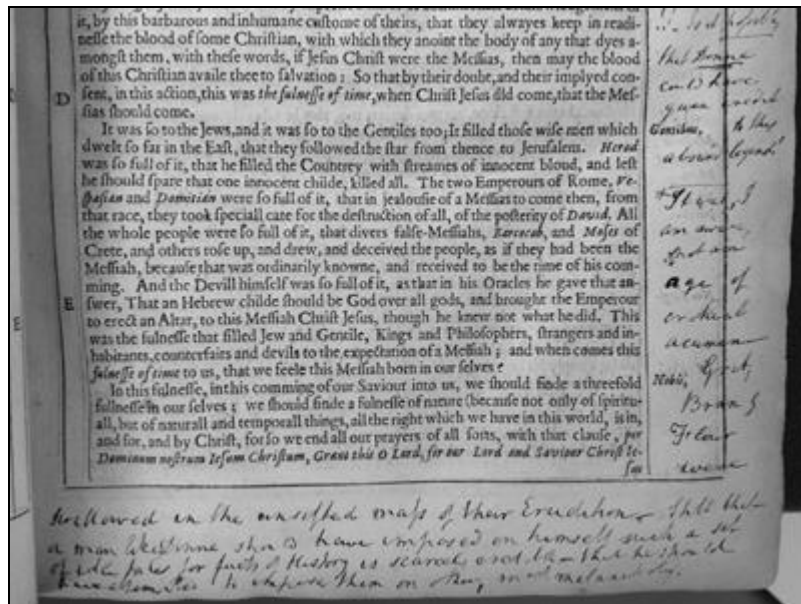 it, by this barbarous and inhumane custome of theirs, that they alwayes keep in readi-
nesse the blood of some Christian, with which they anoint the body of any that dyes a-
mongst them, with these words, if Jesus Christ were the Messias, then may the blood
of this Christian availe thee to salvation: So that by their doubt, and their implyed con-
D
sent, in this action, this was the fulnesse of time, when Christ Jesus did come, that the Mes-
sias should come.
It was so to the Jews, and it was so to the Gentiles too; It filled those wise men which
dwelt so far in the East, that they followed the star from thence to Jerusalem. Herod
was so full of it, that he filled the Countrey with streames of innocent bloud, and lest
he should spare that one innocent childe, killed all. The two Emperours of Rome, Ve-
spasian and Domitian were so full of it, that in jealousie of a Messias to come then, from
that race, they took speciall care for the destruction of all, of the posterity of David. All
the whole people were so full of it, that divers false-Messiahs, and Moses of
Crete, and others rose up, and drew, and deceived the people, as if they had been the
Messiah, because that was ordinarily knowne, and received to be the time of his com-
ming. And the Devill himself was so full of it, as that in his Oracles he gave that an-
E
swer, That an Hebrew childe should be God over all gods, and brought the Emperour
to erect an Altar, to this Messiah Christ Jesus, though he knew not what he did. This
was the fulnesse that filled Jew and Gentile, Kings and Philosophers, strangers and in-
habitants, counterfaits and devils to the expectation of a Messiah; and when comes this
fulnesse of time to us, that we feele this Messiah born in our selves?
In this fulnesse, in this comming of our Saviour into us, we should finde a threefold
fulnesse in our selves; we should finde a fulnesse of nature (because not only of spiritu-
all, but of naturall and temporall things, all the right which we have in this world, is in,
and for, and by Christ, for so we end all our prayers of all sorts, with that clause, per
Dominum nostrum Iesum Christum, Grant this O Lord, for our Lord and Saviour Christ Ie-
sus
possibly
that Donne
could have
given credit
Gentibus,
to this
absurd legend!
It was, I
am aware,
not an
age of
critical
acumen
Nobis,
were
swallowed in the unsifted mass of their Erudition. Still that
a man like Donne should have imposed on himself such a set
of idle tales for facts of History is scarcely credible — that he should
have attempted to impose them on others, most melancholy.